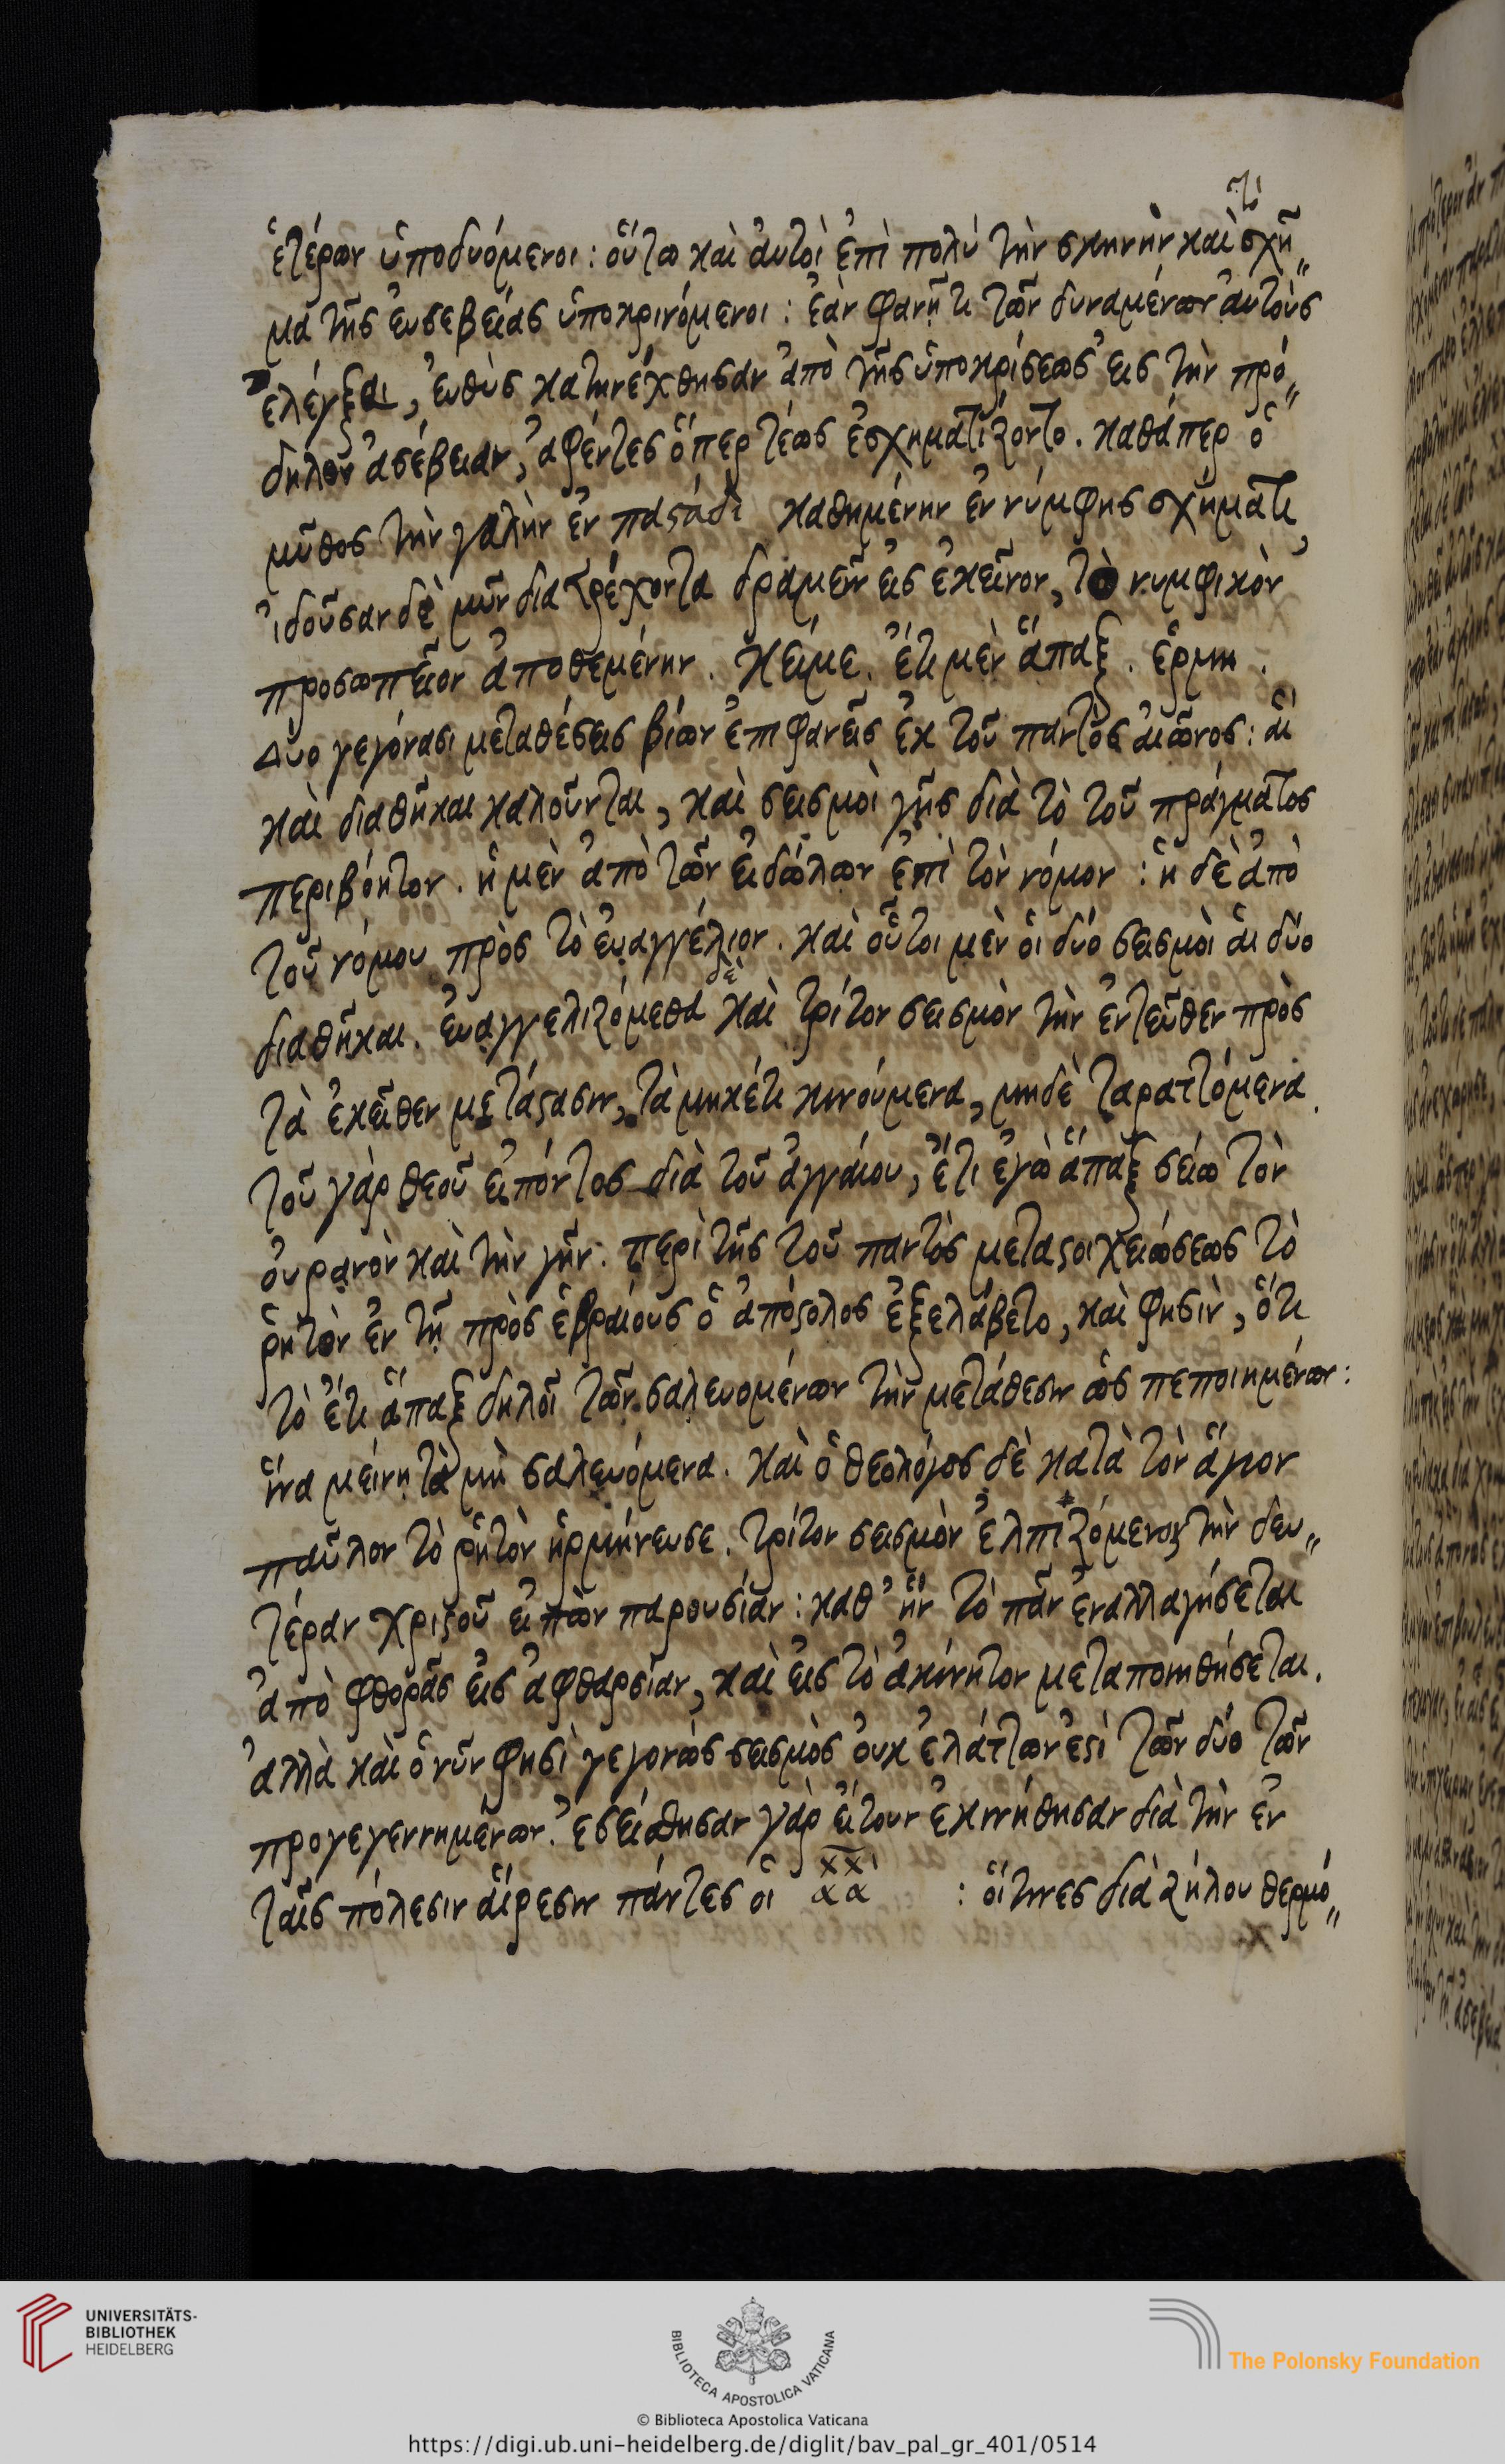 τὸ
ἑτέρων ὑποδυόμενοι: οὕτω καὶ ἀυτοὶ ἐπὶ πολὺ τὴν σκηνὴν καὶ σχῆ„
μα τῆς ἐυσεβείας ὑποκρινόμενοι: ἐὰν φανῇ τι τῶν δυναμένων ἀυτοὺς
ἐλέγξαι, ἐυθὺς κατηνέχθησαν ἀπὸ τῆς ὑποκρίσεως εἰς τὴν πρό„
δηλον ἀσέβειαν, ἀφέντες ὅπερ τέως ἐσχηματίζοντο. καθάπερ ὁ
μῦθος τὴν γαλὴν ἐν παςάδι καθημένην ἐν νύμφης σχήματι,
ἰδοῦσαν δὲ μῦν διατρέχοντα δραμεῖν εἰς ἐκεῖνον, τὸ νυμφικὸν
προσωπεῖον ἀποθεμένην. κείμε. ἔτι μὲν ἅπαξ. ἑρμη.
Δύο γεγόνασι μεταθέσεις βίων ἐπιφανεῖς ἐκ τοῦ παντὸς ἀιῶνος: ἁὶ
καὶ διαθῆκαι καλοῦνται, καὶ σεισμοὶ γῆς διὰ τὸ τοῦ πράγματος
περιβόητον. ἡ μὲν ἀπὸ τῶν εἰδώλων ἐπὶ τὸν νόμον: ἡ δὲ ἀπὸ
τοῦ νόμου πρὸς τὸ ἐυαγγέλιον. καὶ οὗτοι μὲν ὁι δύο σεισμοὶ ἁι δύο
διαθῆκαι. ἐυαγγελιζόμεθα δὲ καὶ τρίτον σεισμὸν τὴν ἐντεῦθεν πρὸς
τὰ ἐκεῖθεν μετάςασιν, τὰ μηκέτι κινούμενα, μηδὲ ταραττόμενα.
τοῦ γὰρ θεοῦ εἰπόντος διὰ τοῦ ἀγγαίου, ἔτι ἐγὼ ἅπαξ σείω τὸν
ὀυρανὸν καὶ τὴν γῆν: περὶ τῆς τοῦ παντὸς μεταςοιχειώσεως τὸ
ῥητὸν ἐν τῇ πρὸς ἑβραίους ὁ ἀπόςολος ἐξελάβετο, καὶ φησὶν, ὅτι
τὸ ἔτι ἅπαξ δηλοῖ τῶν σαλευομένων τὴν μετάθεσιν ὡς πεποιημένων:
ἵνα μείνῃ τὰ μὴ σαλευόμενα. καὶ ὁ θεολόγος δὲ κατὰ τὸν ἅγιον
παῦλον τὸ ῥητὸν ἡρμήνευσε. τρίτον σεισμὸν ἐλπιζόμενον τὴν δευ„
τέραν χριςοῦ εἰπὼν παρουσίαν: καθ᾽ ἣν τὸ πᾶν ἐναλλαγήσεται
ἀπὸ φθορᾶς εἰς ἀφθαρσίαν, καὶ εἰς τὸ ἀκίνητον μεταποιηθήσεται.
ἀλλὰ καὶ ὁ νῦν φησὶ γεγονὼς σεισμὸς ὀυκ ἐλάττων ἐςὶ τῶν δύο τῶν
προγεγεννημένων. ἐσείσθησαν γὰρ εἴτουν ἐκινήθησαν διὰ τὴν ἐν
ταῖς πόλεσιν ἁίρεσιν πάντες οἱ χχ
αα : οἵτινες διὰ ζήλου θερμό„
UNIVERSITÄTS-
BIBLIOTHEK
HEIDELBERG
BIBLIOTECA APOSTOLICA VATICANA
The Polonsky Foundation
© Biblioteca Apostolica Vaticana
https://digi.ub.uni-heidelberg.de/diglit/bav_pal_gr_401/0514